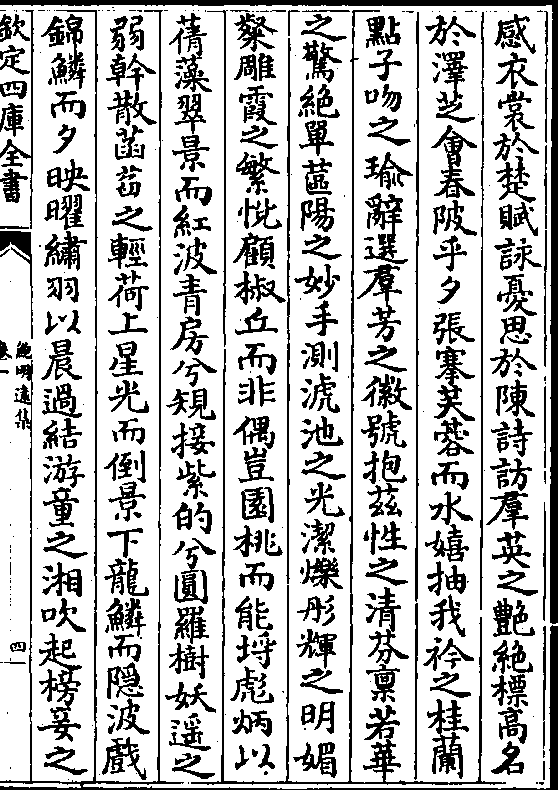 感衣裳於楚賦詠憂思於陳詩訪羣英之艷絶標高名
於澤芝會春陂乎夕張搴芙蓉而水嬉抽我衿之桂蘭
點子吻之瑜辭選羣芳之徽號抱兹性之清芬稟若華
之驚絶單蕋陽之妙手測淲池之光潔爍彤輝之明媚
粲雕霞之繁悦顧椒丘而非偶豈園桃而能埒彪炳以
蒨藻翠景而紅波青房兮規接紫的兮圓羅樹妖遥之
弱幹散菡萏之輕荷上星光而倒景下龍鱗而隠波戲
錦鱗而夕映曜繡羽以晨過結游童之湘吹起榜妾之
欽定四庫全書
鮑明遠集
卷一
四